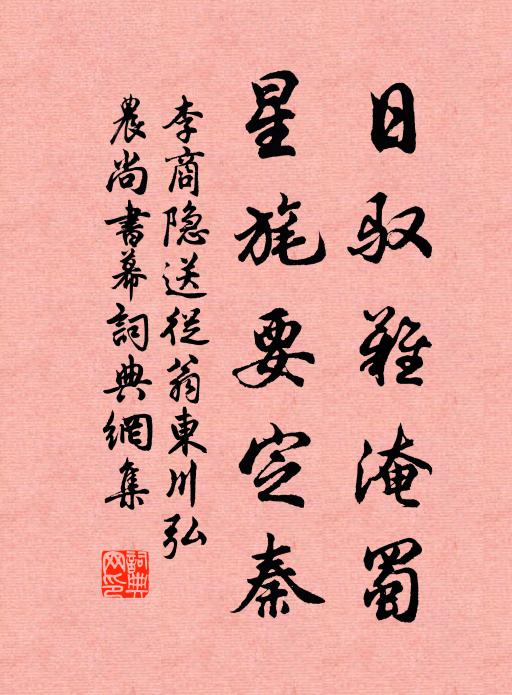 日驭难淹蜀
星旄要定秦
李商隐送從翁東川弘
農尚書幕詞典網集
詞典網印